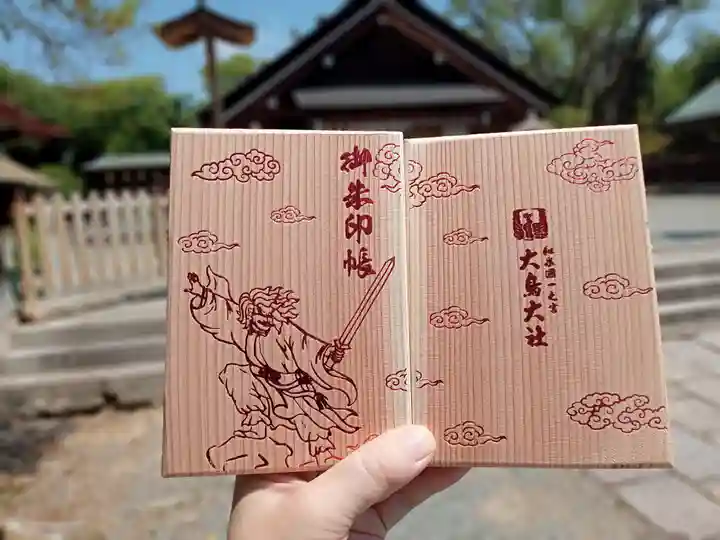 御朱印帳
和泉國一之宮
大鳥大社